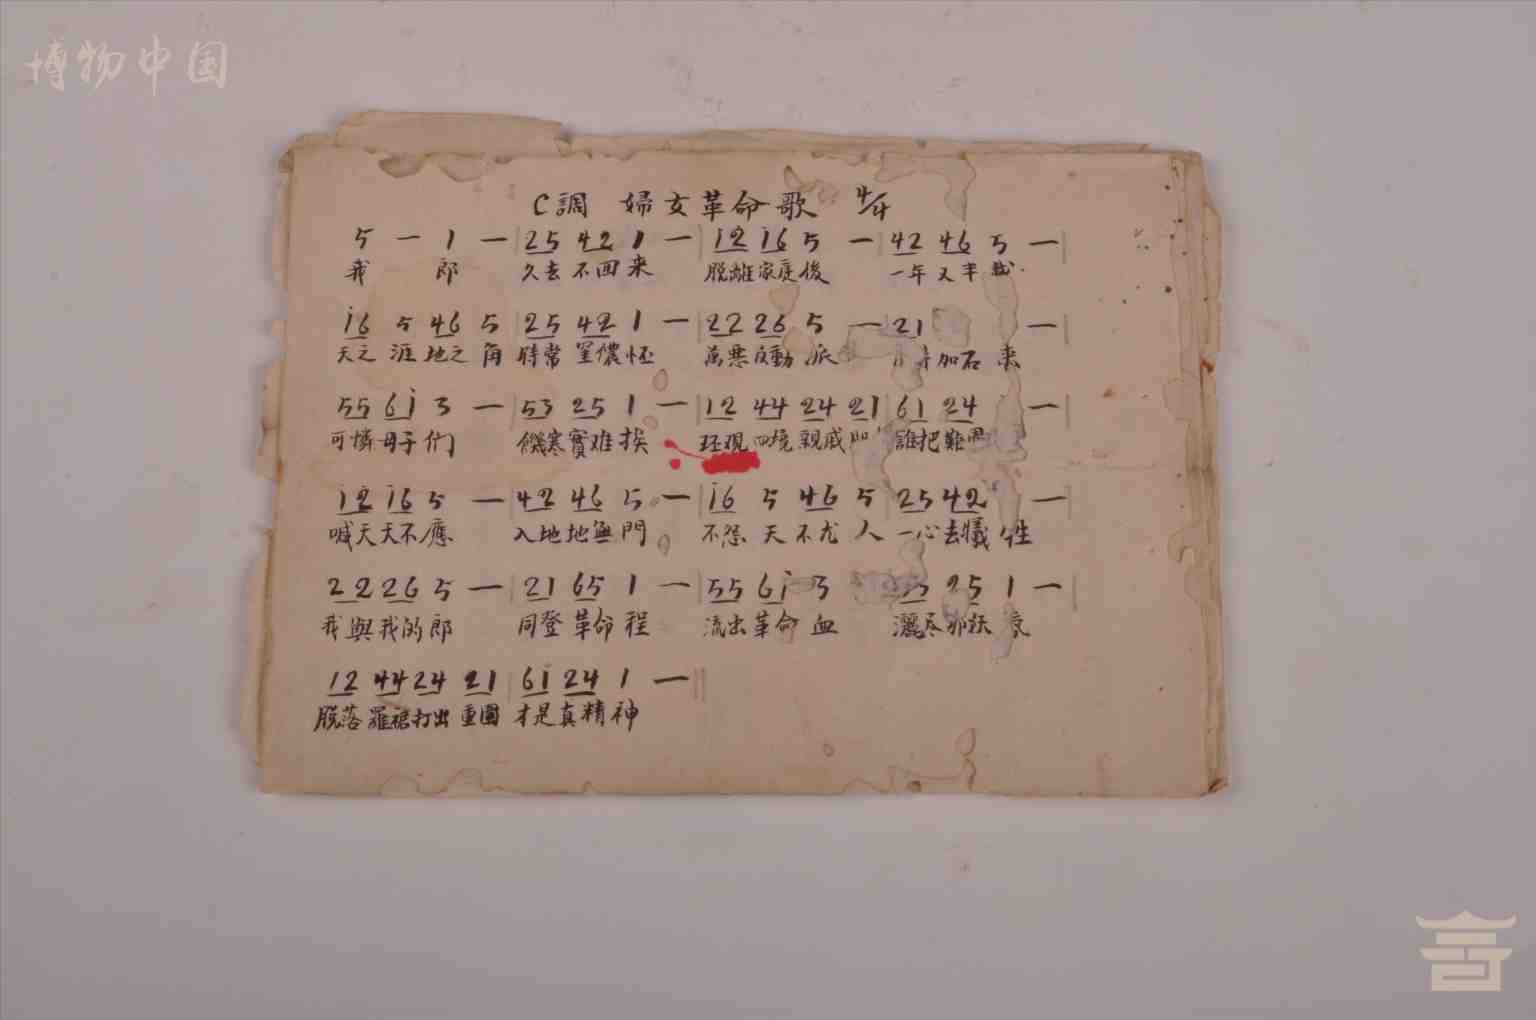 博物中国
C調 婦女革命歌 4/4
5 — 1 — | 25 42 1 — | i2 i6 5 — | 42 46 5 — |
我 郎 久去不回来 脫離家庭後 一年又半
i6 5 46 5 | 25 42 1 — | 22 26 5 — | 21 — |
天之涯地之角 時常 儂怀 萬惡反動派 加石来
55 6i 3 — | 53 25 1 — | 12 44 24 21 | 61 24 — |
可憐母子們 饑寒實难挨 环观四境親戚 誰把難
i2 i6 5 — | 42 46 5 — | i6 5 46 5 | 25 42 — |
喊天天不應 入地地無門 不怨天不尤人 一心去犧牲
22 26 5 — | 21 65 1 — | 55 6i 3 25 1 — |
我與我的郎 同登革命程 流出革命血 灑尽邪妖氛
12 44 24 21 | 6i 24 1 — ||
脫落羅裙打出重圍 才是真精神